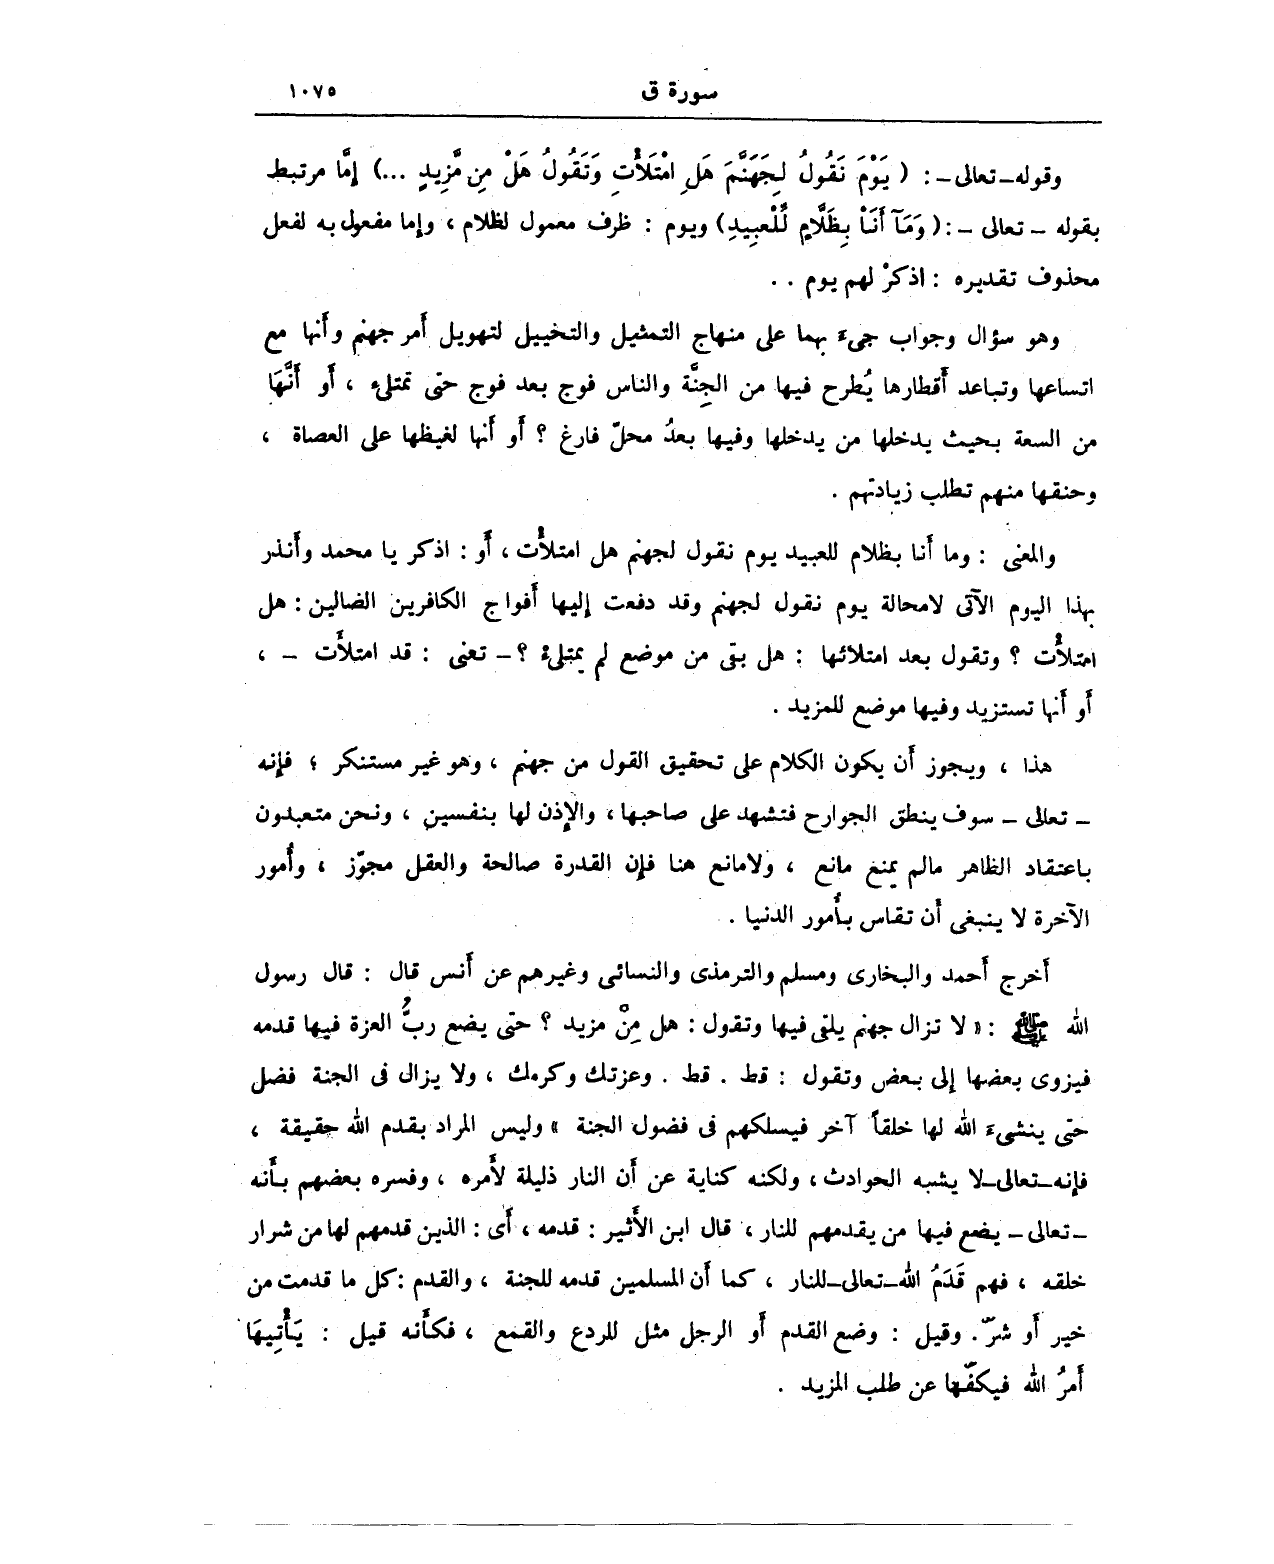 سورة ق ١٠٧٥
وقوله ـ تعالى ـ : ( يَوْمَ نَقُولُ لِجَهَنَّمَ هَلِ امْتَلَأْتِ وَتَقُولُ هَلْ مِن مَّزِيدٍ ... ) إمَّا مرتبط
بقوله ـ تعالى ـ : ( وَمَآ أَنَا۠ بِظَلَّامٍ لِّلْعَبِيدِ ) ويوم : ظرف معمول لظلام ، وإما مفعول به لفعل
محذوف تقديره : اذكرْ لهم يوم . .
وهو سؤال وجواب جىءَ بهما على منهاج التمثيل والتخييل لتهويل أَمر جهنم وأَنها مع
اتساعها وتباعد أَقطارها يُطرح فيها من الجِنَّة والناس فوج بعد فوج حتى تمتلىء ، أَو أَنَّهَا
من السعة بحيث يدخلها من يدخلها وفيها بعدُ محلّ فارغ ؟ أَو أَنها لغيظها على العصاة ،
وحنقها منهم تطلب زيادتهم .
والمعنى : وما أَنا بظلام للعبيد يوم نقول لجهنم هل امتلأْت ، أَو : اذكر يا محمد وأَنذر
بهذا اليوم الآتى لامحالة يوم نقول لجهنم وقد دفعت إليها أَفواج الكافرين الضالين : هل
امتلأْت ؟ وتقول بعد امتلائها : هل بقى من موضع لم يمتلىءْ ؟ ـ تعنى : قد امتلأَت ـ ،
أَو أَنها تستزيد وفيها موضع للمزيد .
هذا ، ويجوز أَن يكون الكلام على تحقيق القول من جهنم ، وهو غير مستنكر ؛ فإنه
ـ تعالى ـ سوف ينطق الجوارح فتشهد على صاحبها ، والإذن لها بنفسين ، ونحن متعبدون
باعتقاد الظاهر مالم يمنع مانع ، ولامانع هنا فإن القدرة صالحة والعقل مجوّز ، وأُمور
الآخرة لا ينبغى أَن تقاس بأُمور الدنيا .
أَخرج أَحمد والبخارى ومسلم والترمذى والنسائى وغيرهم عن أَنس قال : قال رسول
الله ﷺ : « لا تزال جهنم يلقى فيها وتقول : هل مِنْ مزيد ؟ حتى يضع ربُّ العزة فيها قدمه
فيزوى بعضها إلى بعض وتقول : قط . قط . وعزتك وكرمك ، ولا يزال فى الجنة فضل
حتى ينشىءَ الله لها خلقاً آخر فيسلكهم فى فضول الجنة » وليس المراد بقدم الله حقيقة ،
فإنه ـ تعالى ـ لا يشبه الحوادث ، ولكنه كناية عن أَن النار ذليلة لأَمره ، وفسره بعضهم بأَنه
ـ تعالى ـ يضع فيها من يقدمهم للنار ، قال ابن الأَثير : قدمه ، أَى : الذين قدمهم لها من شرار
خلقه ، فهم قَدَمُ الله ـ تعالى ـ للنار ، كما أَن المسلمين قدمه للجنة ، والقدم : كل ما قدمت من
خير أَو شرّ . وقيل : وضع القدم أَو الرجل مثل للردع والقمع ، فكأَنه قيل : يَأْتِيهَا
أَمرُ الله فيكفّها عن طلب المزيد .